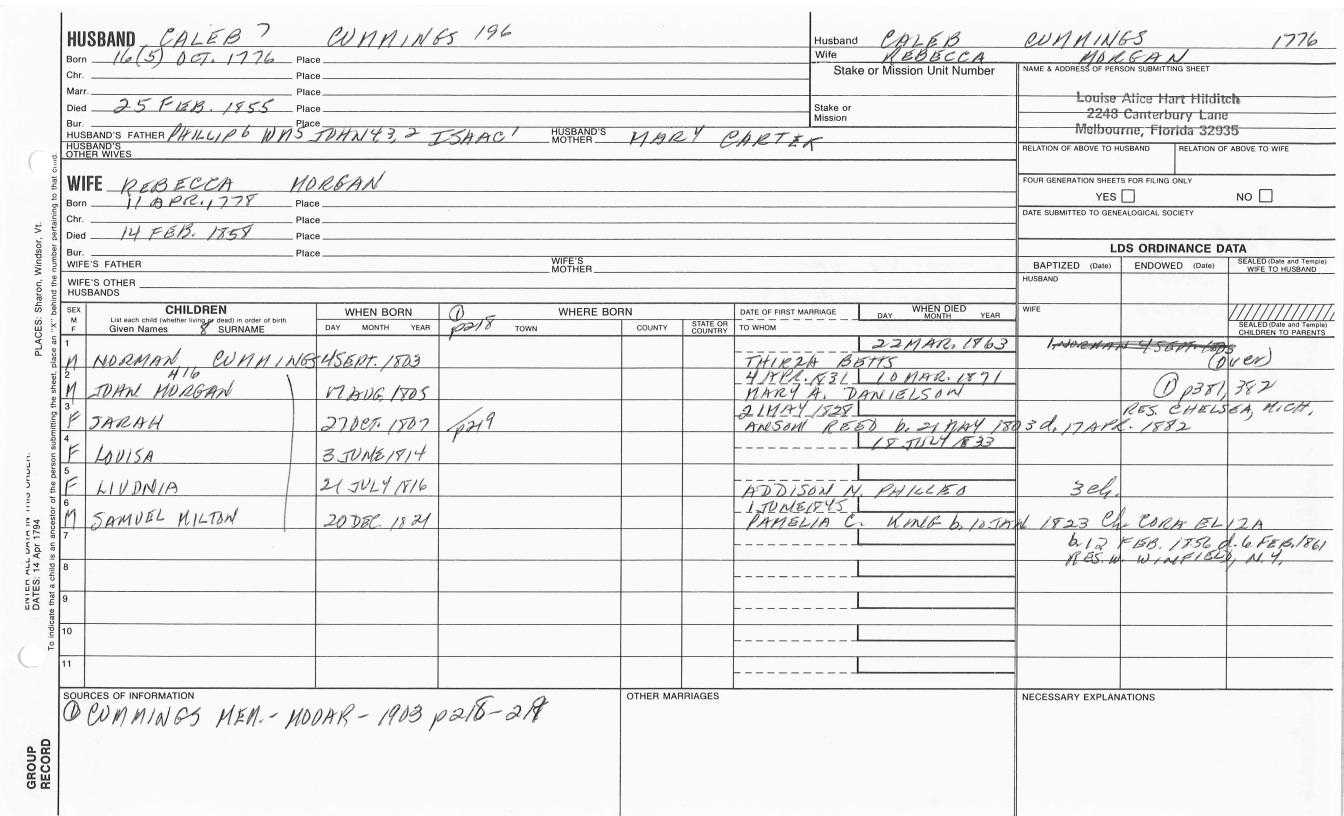 HUSBAND CALEB 7 CUMMINGS 196
Born 16(5) OCT. 1776 Place
Chr. Place
Marr. Place
Died 25 FEB. 1855 Place
Bur. Place
HUSBAND'S FATHER PHILLIP6 WMS JOHN43,2 ISAAC1 HUSBAND'S MOTHER MARY CARTER
HUSBAND'S OTHER WIVES
Husband CALEB CUMMINGS 1776
Wife REBECCA MORGAN
Stake or Mission Unit Number
Stake or Mission
NAME & ADDRESS OF PERSON SUBMITTING SHEET
Louise Alice Hart Hilditch
2248 Canterbury Lane
Melbourne, Florida 32935
RELATION OF ABOVE TO HUSBAND RELATION OF ABOVE TO WIFE
FOUR GENERATION SHEETS FOR FILING ONLY
YES NO
DATE SUBMITTED TO GENEALOGICAL SOCIETY
WIFE REBECCA MORGAN
Born 11 APR. 1778 Place
Chr. Place
Died 14 FEB. 1858 Place
Bur. Place
WIFE'S FATHER WIFE'S MOTHER
WIFE'S OTHER HUSBANDS
LDS ORDINANCE DATA
BAPTIZED (Date) ENDOWED (Date) SEALED (Date and Temple) WIFE TO HUSBAND
HUSBAND
WIFE
SEALED (Date and Temple) CHILDREN TO PARENTS
SEX M F
CHILDREN
List each child (whether living or dead) in order of birth
Given Names 8 SURNAME
WHEN BORN
DAY MONTH YEAR
① p218
WHERE BORN
TOWN COUNTY STATE OR COUNTRY
DATE OF FIRST MARRIAGE
TO WHOM
WHEN DIED
DAY MONTH YEAR
1 22 MAR. 1863 1. NORMAN 4 SEPT. 1803
M NORMAN CUMMINGS 4 SEPT. 1803 THIRZA BETTS (OVER)
2 416 4 APR. 1831 10 MAR. 1871
M JOHN MORGAN 17 AUG. 1805 MARY A. DANIELSON ① p381, 382
3 21 MAY 1828 RES. CHELSEA, MICH,
F SARAH 27 OCT. 1807 p219 ANSOM REED b. 21 MAY 1803 d. 17 APR. 1882
4 18 JULY 1833
F LOUISA 3 JUNE 1814
5
F LIVONIA 21 JULY 1816 ADDISON N. PHILLEO 3 ch.
6 1 JUNE 1845
M SAMUEL MILTON 20 DEC. 1821 PAMELIA C. KING b. 10 JAN 1823 Ch CORA ELIZA
7 b. 12 FEB. 1856 d. 6 FEB. 1861
RES. W. WINFIELD, N.Y.
8
9
10
11
SOURCES OF INFORMATION
① CUMMINGS MEM. - MOOAR - 1903 p218-219
OTHER MARRIAGES
NECESSARY EXPLANATIONS
PLACES: Sharon, Windsor, Vt.
ENTER ALL DATA IN THIS ORDER:
DATES: 14 Apr 1794
To indicate that a child is an ancestor of the person submitting the sheet, place an "X" behind the number pertaining to that child.
GROUP RECORD